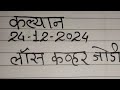 कल्यान
24-12-2024
लॉस कव्हर जोडी